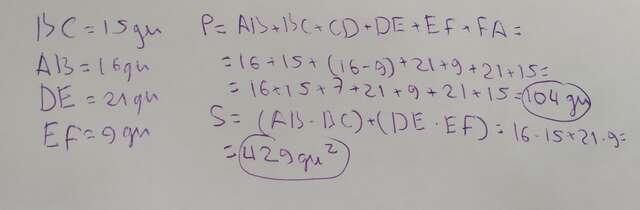 BC = 15 дм
AB = 16 дм
DE = 21 дм
EF = 9 дм
P = AB + BC + CD + DE + EF + FA =
= 16 + 15 + (16 - 9) + 21 + 9 + 21 + 15 =
= 16 + 15 + 7 + 21 + 9 + 21 + 15 = 104 дм
S = (AB · BC) + (DE · EF) = 16 · 15 + 21 · 9 =
= 429 дм²